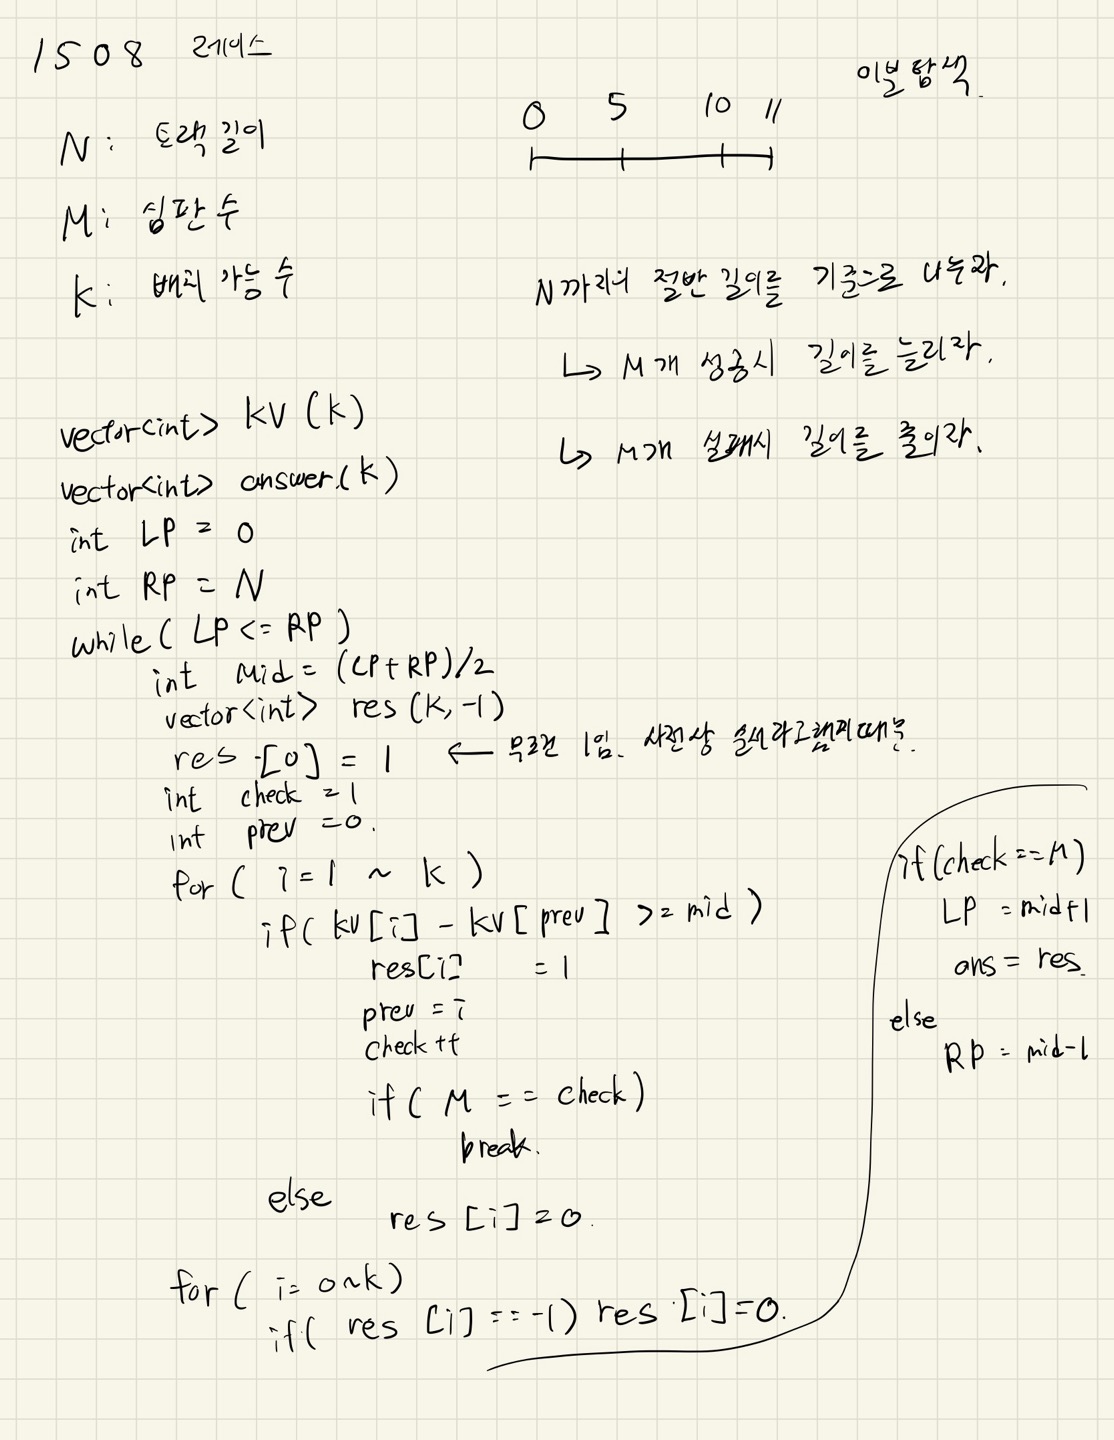 1508 레이스
이분탐색.
N: 트랙 길이
M: 심판 수
K: 배치 가능 수
0 5 10 11
N까지의 절반 길이를 기준으로 나누라.
↳ M개 성공시 길이를 늘리라.
↳ M개 실패시 길이를 줄이라.
vector<int> kv (k)
vector<int> answer.(k)
int LP = 0
int RP = N
while( LP <= RP )
int Mid = (LP+RP)/2
vector<int> res (K, -1)
res [0] = 1 ← 무조건 1임. 사전상 순서라고했기때문.
int check = 1
int prev = 0.
for ( i=1 ~ k )
if( kv[i] - kv[prev] >= mid )
res[i] = 1
prev = i
check ++
if( M == check)
break.
else
res [i] = 0.
for ( i= 0~k)
if( res [i] == -1) res [i]=0.
if(check==M)
LP = mid+1
ans = res.
else
RP = mid-1